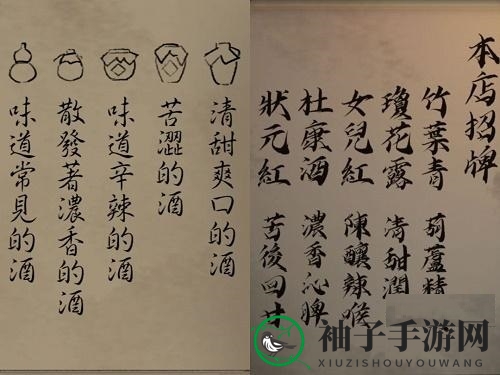 清甜爽口的酒
苦澀的酒
味道辛辣的酒
散發著濃香的酒
味道常見的酒
本店招牌
竹葉青 葫蘆精
瓊花露 清甜潤
女兒紅 陳釀辣喉
杜康酒 濃香沁脾
狀元紅 苦後回甘
袖子手游网
XIUZISHOUYOUWANG